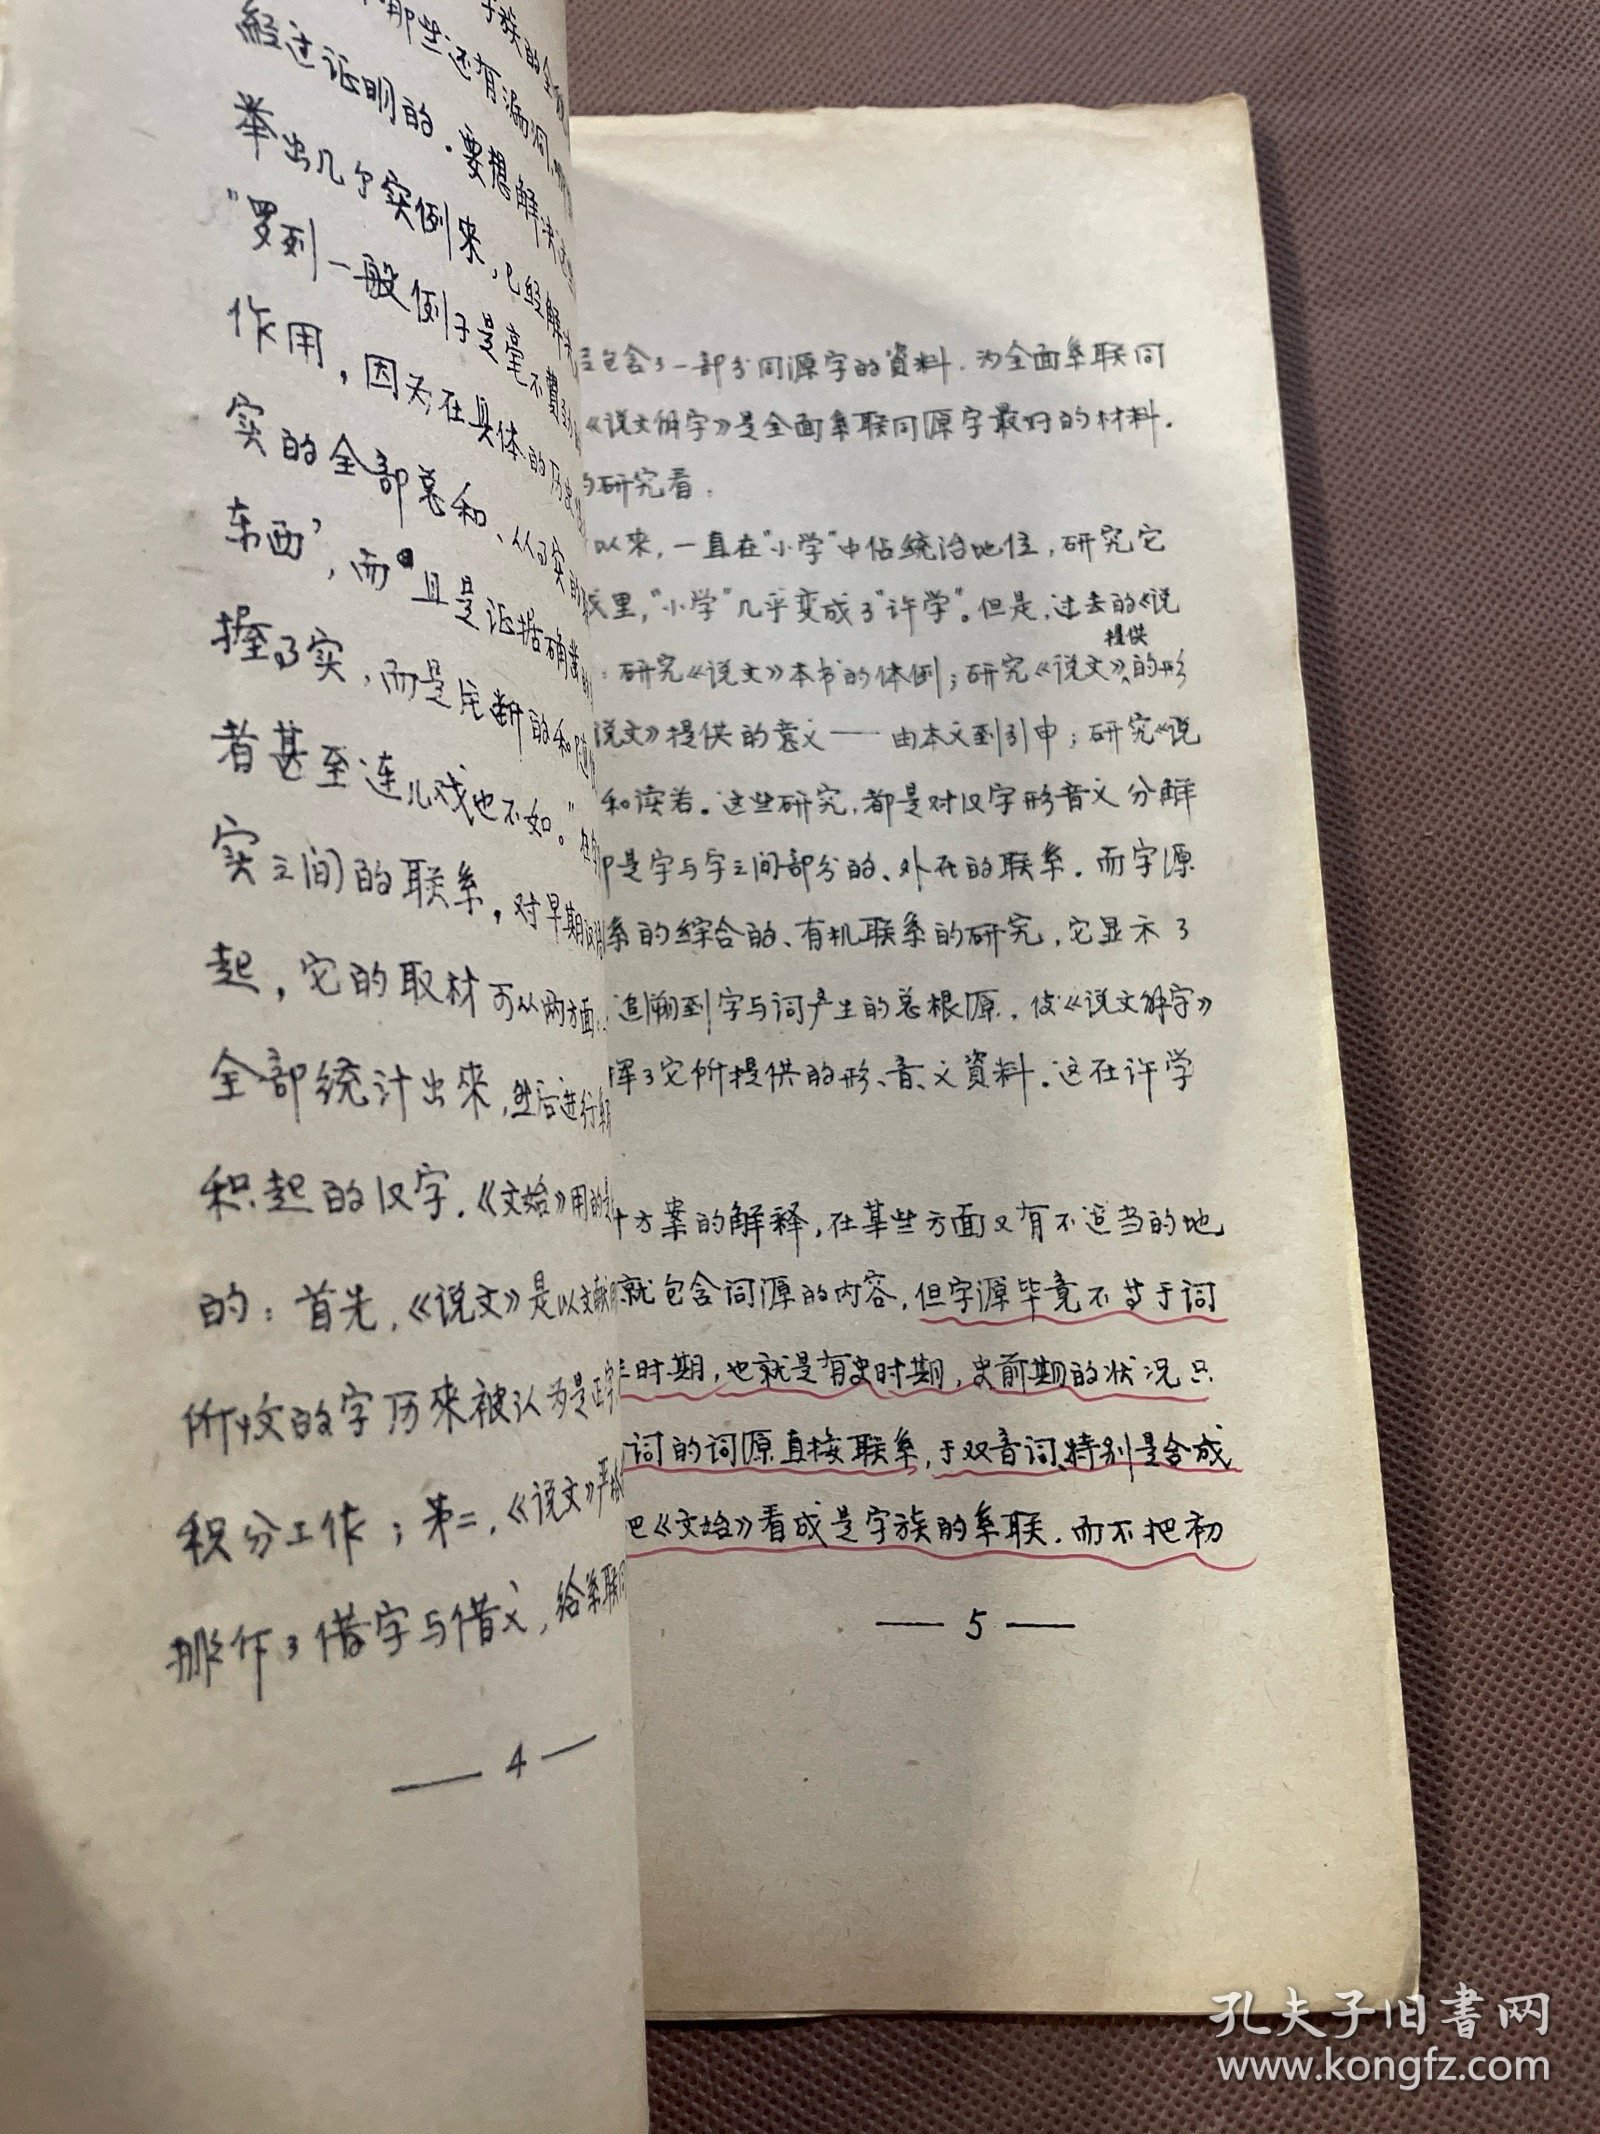 子族的全
那些还有漏洞,
经过证明的.要想解决
举出几个实例来,已经解决
"罗列一般例子是毫不费劲
作用,因为,在具体的历史
实的全部总和、从事实的
东西',而且是证据确凿
握事实,而是片断的和随
者甚至连儿戏也不如。"
实之间的联系,对早期
起,它的取材可从两方面:
全部统计出来,然后进行
积起的汉字.《文始》用的是
的:首先,《说文》是以文献
所收的字历来被认为是正字
积分工作;第二,《说文》严格
那作了借字与借义,给系联同
— 4 —
包含了一部分同源字的资料.为全面系联同
《说文解字》是全面系联同源字最好的材料.
的研究看:
以来,一直在"小学"中佔统治地位,研究它
里,"小学"几乎变成了"许学"。但是,过去的《说
提供
:研究《说文》本书的体例;研究《说文》的形
说文》提供的意义——由本义到引申;研究《说
和读若。这些研究,都是对汉字形音义分解
即是字与字之间部分的、外在的联系.而字源
系的综合的、有机联系的研究,它显示了
追溯到字与词产生的总根源,使《说文解字》
挥了它所提供的形、音、义资料.这在许学
方案的解释,在某些方面又有不适当的地
就包含词源的内容,但字源毕竟不等于词
时期,也就是有史时期,史前期的状况只
词的词源直接联系,于双音词、特别是合成
把《文始》看成是字族的系联.而不把初
— 5 —
孔夫子旧书网
www.kongfz.com